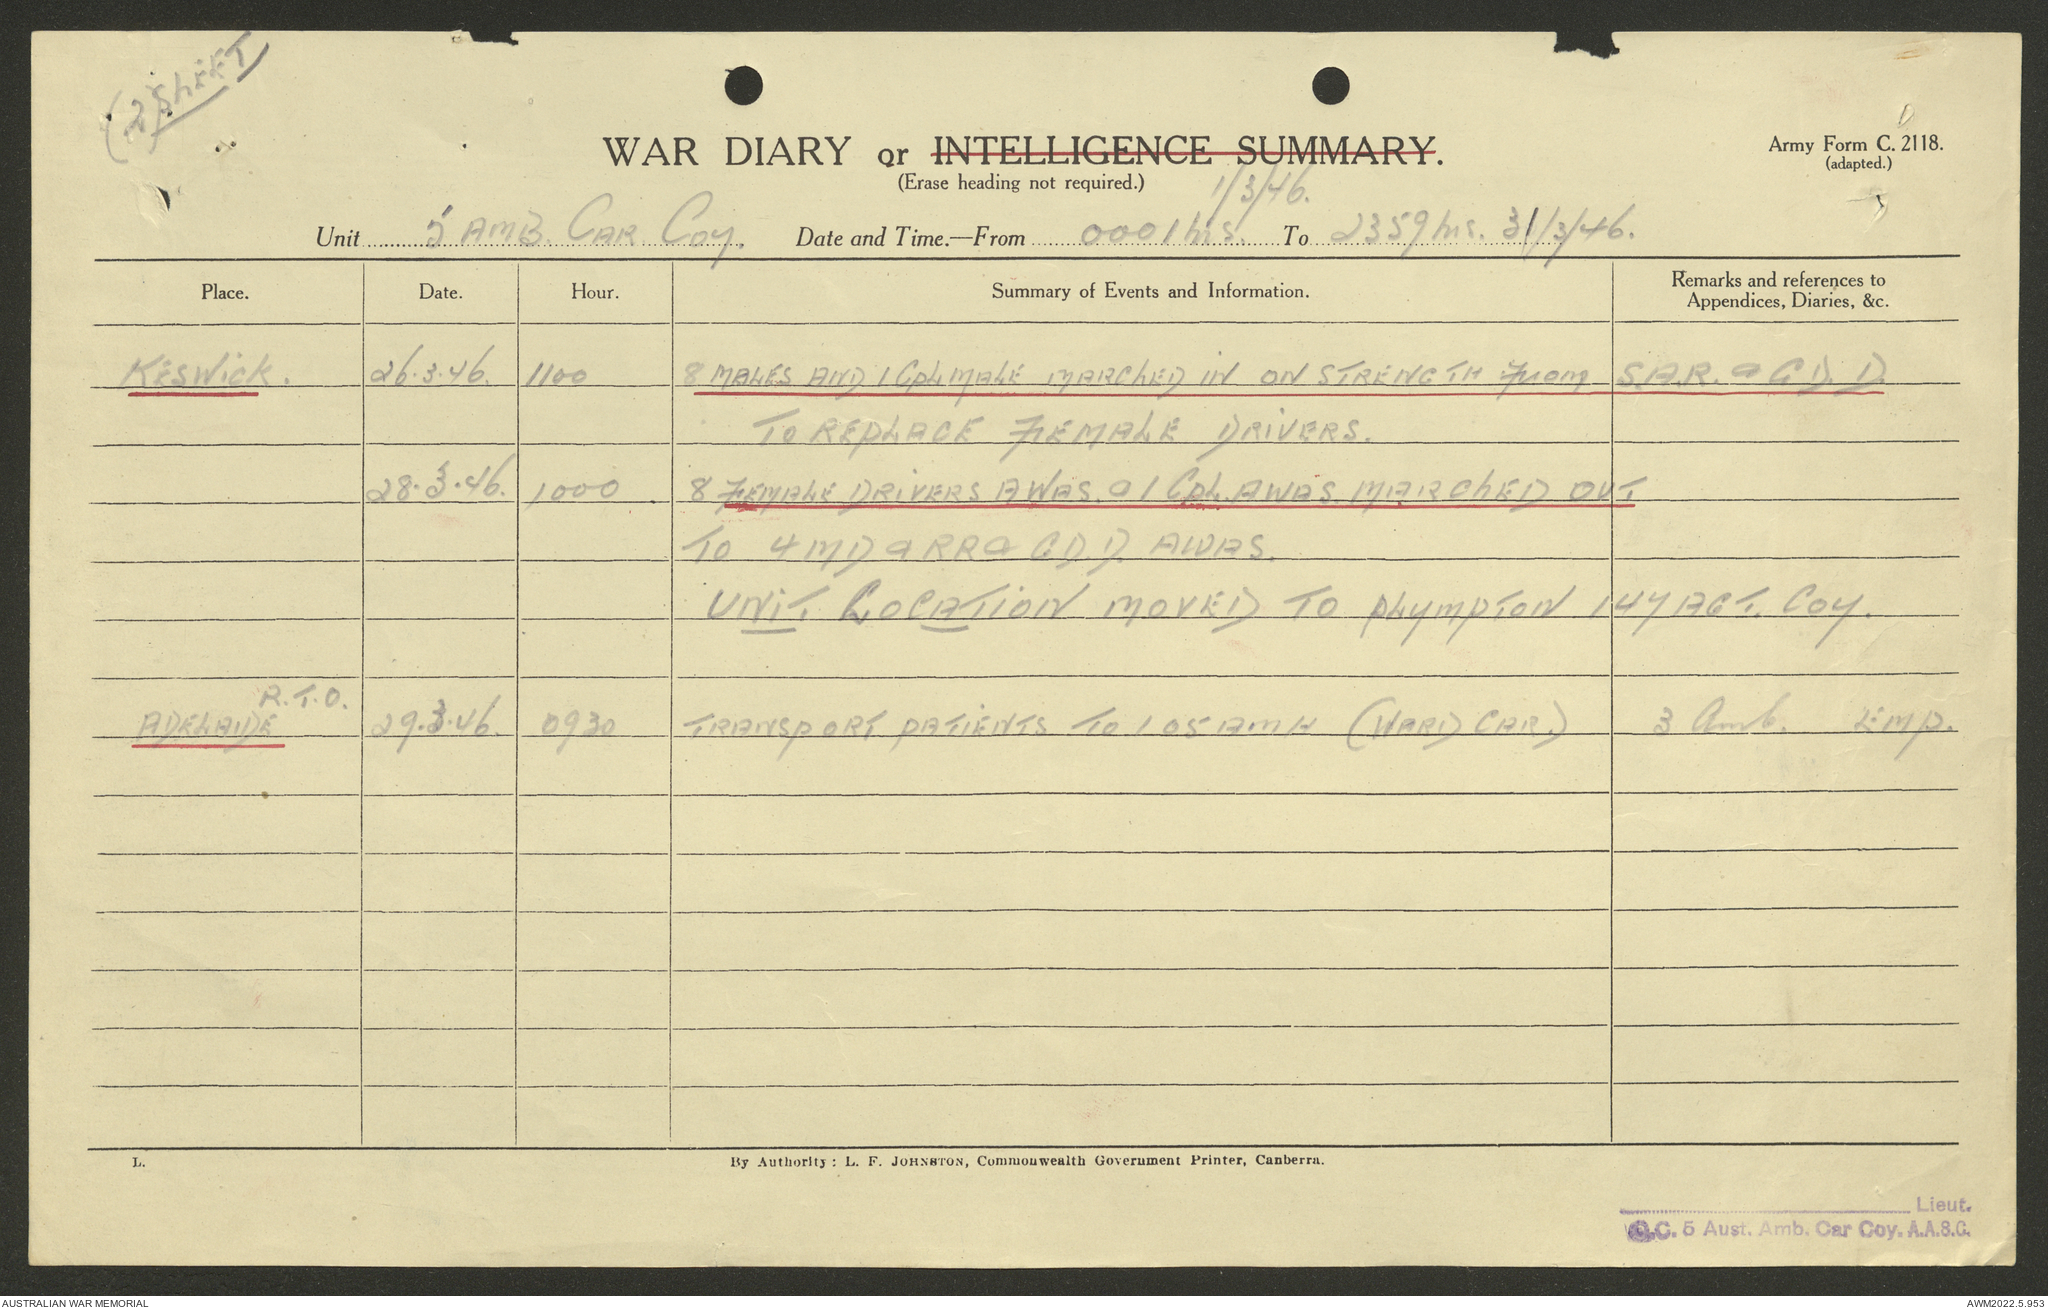 (2 SHEET
WAR DIARY or INTELLIGENCE SUMMARY.
(Erase heading not required.)
Army Form C. 2118.
(adapted.)
1/3/46.
Unit 5 AMB. CAR COY. Date and Time.—From 0001 hrs. To 2359 hrs. 31/3/46.
Place. Date. Hour. Summary of Events and Information. Remarks and references to
Appendices, Diaries, &c.
KESWICK. 26.3.46. 1100 8 MALES AND 1 CPL MALE MARCHED IN ON STRENGTH From S.A.R. & G.D.D.
TO REPLACE FEMALE DRIVERS.
28.3.46. 1000 8 FEMALE DRIVERS AWAS. & 1 CPL. AWAS. MARCHED OUT
TO 4 MD & RR & G.D.D. AWAS.
UNIT LOCATION MOVED TO PLYMPTON 147 AGT. COY.
R.T.O.
ADELAIDE 29.3.46. 0930 TRANSPORT PATIENTS TO 105 AMH (WARD CAR.) 3 Amb. EMP.
L. By Authority: L. F. JOHNSTON, Commonwealth Government Printer, Canberra.
Lieut.
O.C. 5 Aust. Amb. Car Coy. A.A.S.C.
AUSTRALIAN WAR MEMORIAL AWM2022.5.953